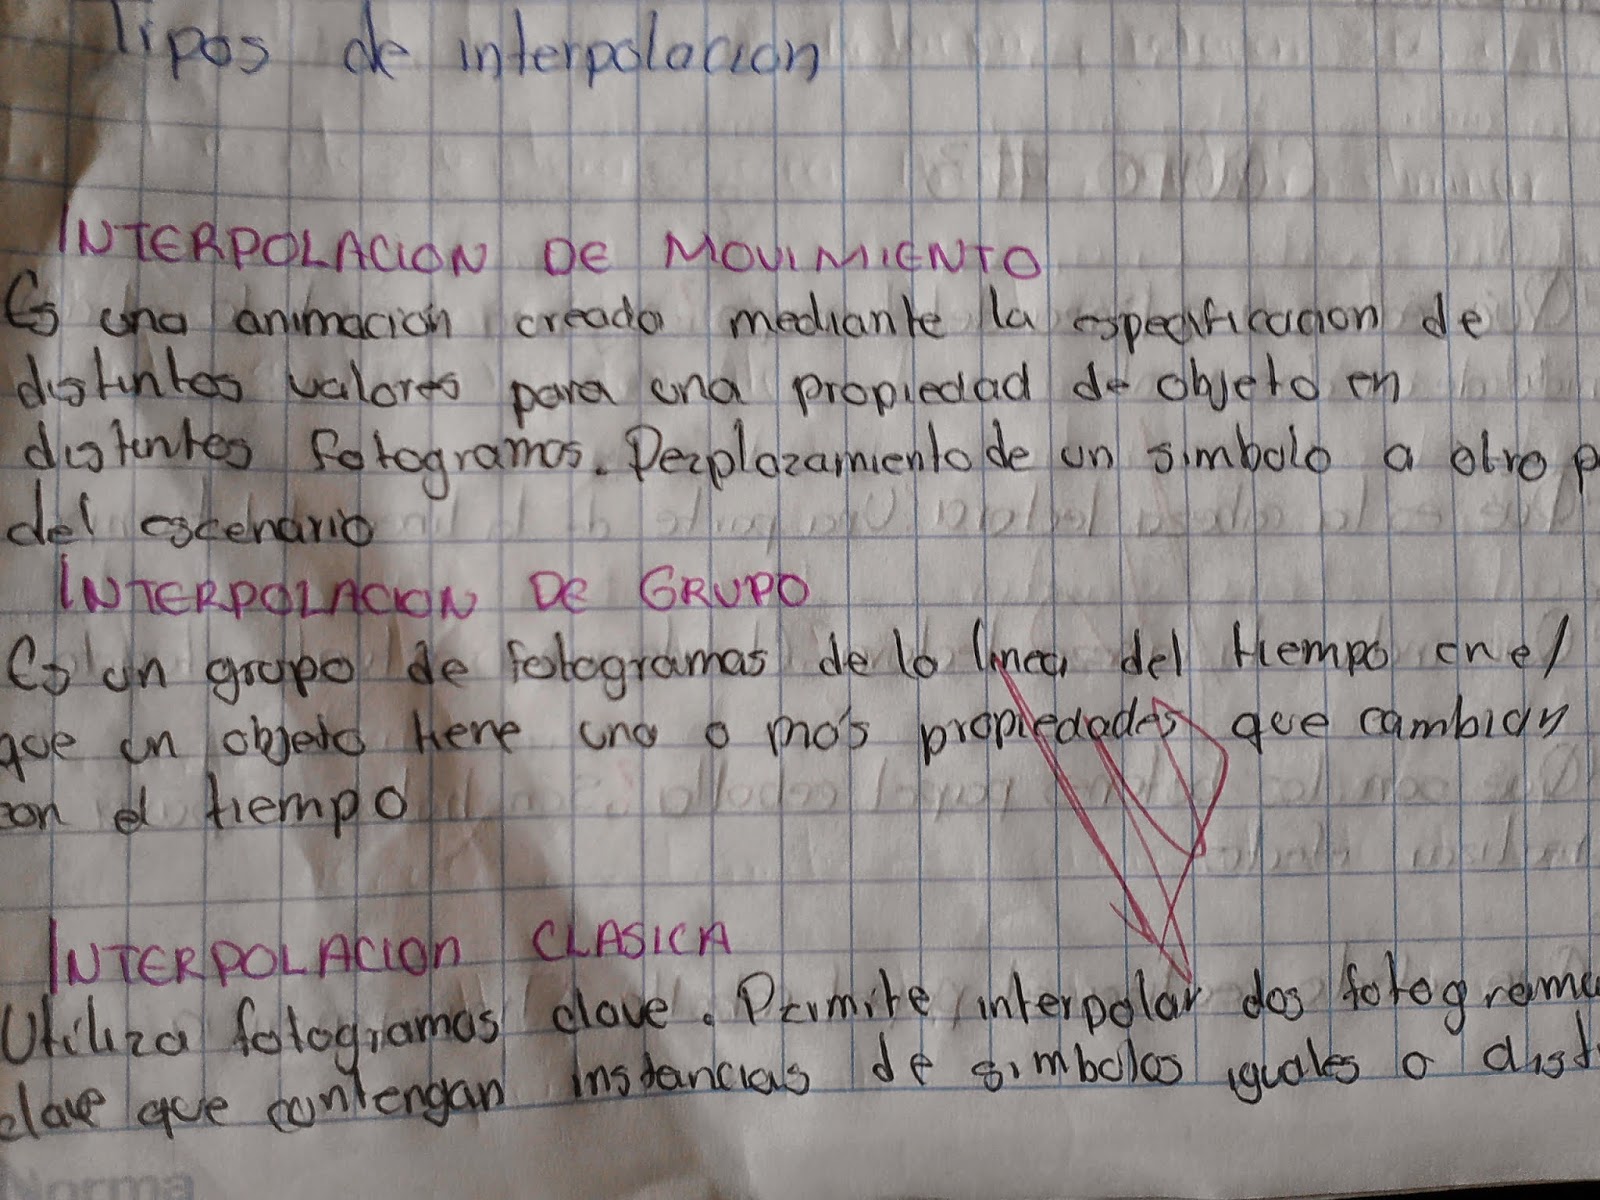 Tipos de interpolacion
INTERPOLACION DE MOVIMIENTO
Es una animación creada mediante la especificacion de
distintos valores para una propiedad de objeto en
distintes fotogramas. Dezplazamiento de un simbolo a otro p
del escenario
INTERPOLACION DE GRUPO
Es un grupo de fotogramas de la linea del tiempo en el
que un objeto tiene una o más propiedades que cambian
con el tiempo
INTERPOLACION CLASICA
Utiliza fotogramas clave. Permite interpolar dos fotograma
clave que contengan instancias de simbolos iguales o dist
Norma